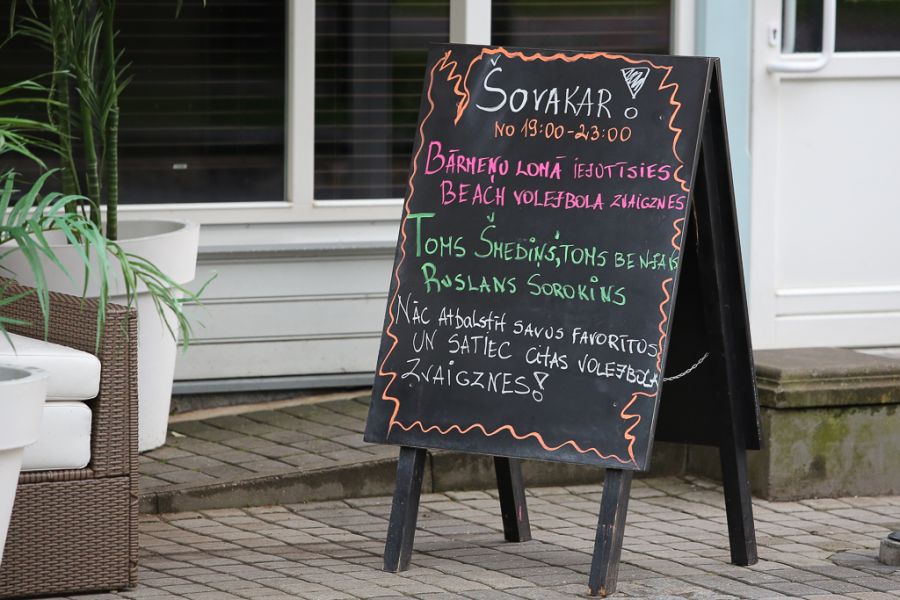 ŠOVAKAR!
NO 19:00-23:00
BĀRMEŅU LOMĀ IEJUTĪSIES
BEACH VOLEJBOLA ZVAIGZNES
TOMS ŠMEDIŅŠ, TOMS BENJAMIS
RUSLANS SOROKINS
NĀC ATBALSTĪT SAVUS FAVORĪTOS
UN SATIEC CITAS VOLEJBOLA
ZVAIGZNES!